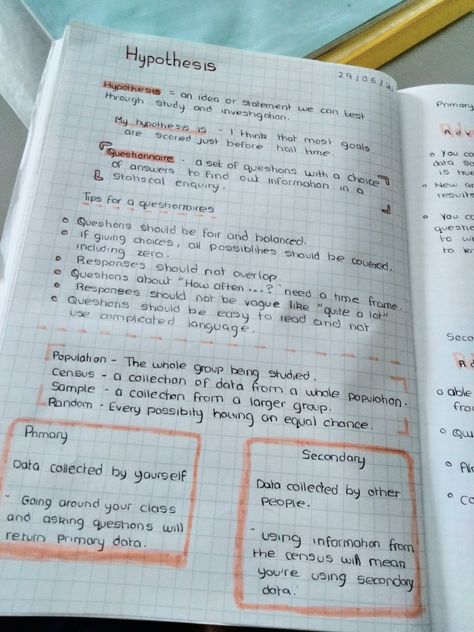 Hypothesis
29/06/21
Hypothesis = an idea or statement we can test
through study and investigation.
My hypothesis is - I think that most goals
are scored just before half time.
Questionnaire - a set of questions with a choice
of answers to find out information in a
Statiscal enquiry.
Tips for a questionnaires
Questions should be fair and balanced.
If giving choices, all possiblities should be covered,
including zero.
Responses should not overlap.
Questions about "How often ...?" need a time frame.
Responses should not be vague like "quite a lot"
Questions should be easy to read and not
use complicated language.
Population - The whole group being studied.
Census - a collection of data from a whole population.
Sample - a collection from a larger group.
Random - Every possibity having an equal chance.
Primary
Data collected by yourself
- Going around your class
and asking questions will
return primary data.
Secondary
Data collected by other
people.
- using information from
the census will mean
you're using secondary
data.
Primary
Adv
You co
data so
is true
New a
results
You co
questio
to w
to k
Seco
Ad
able
from
Qu
Al
Co